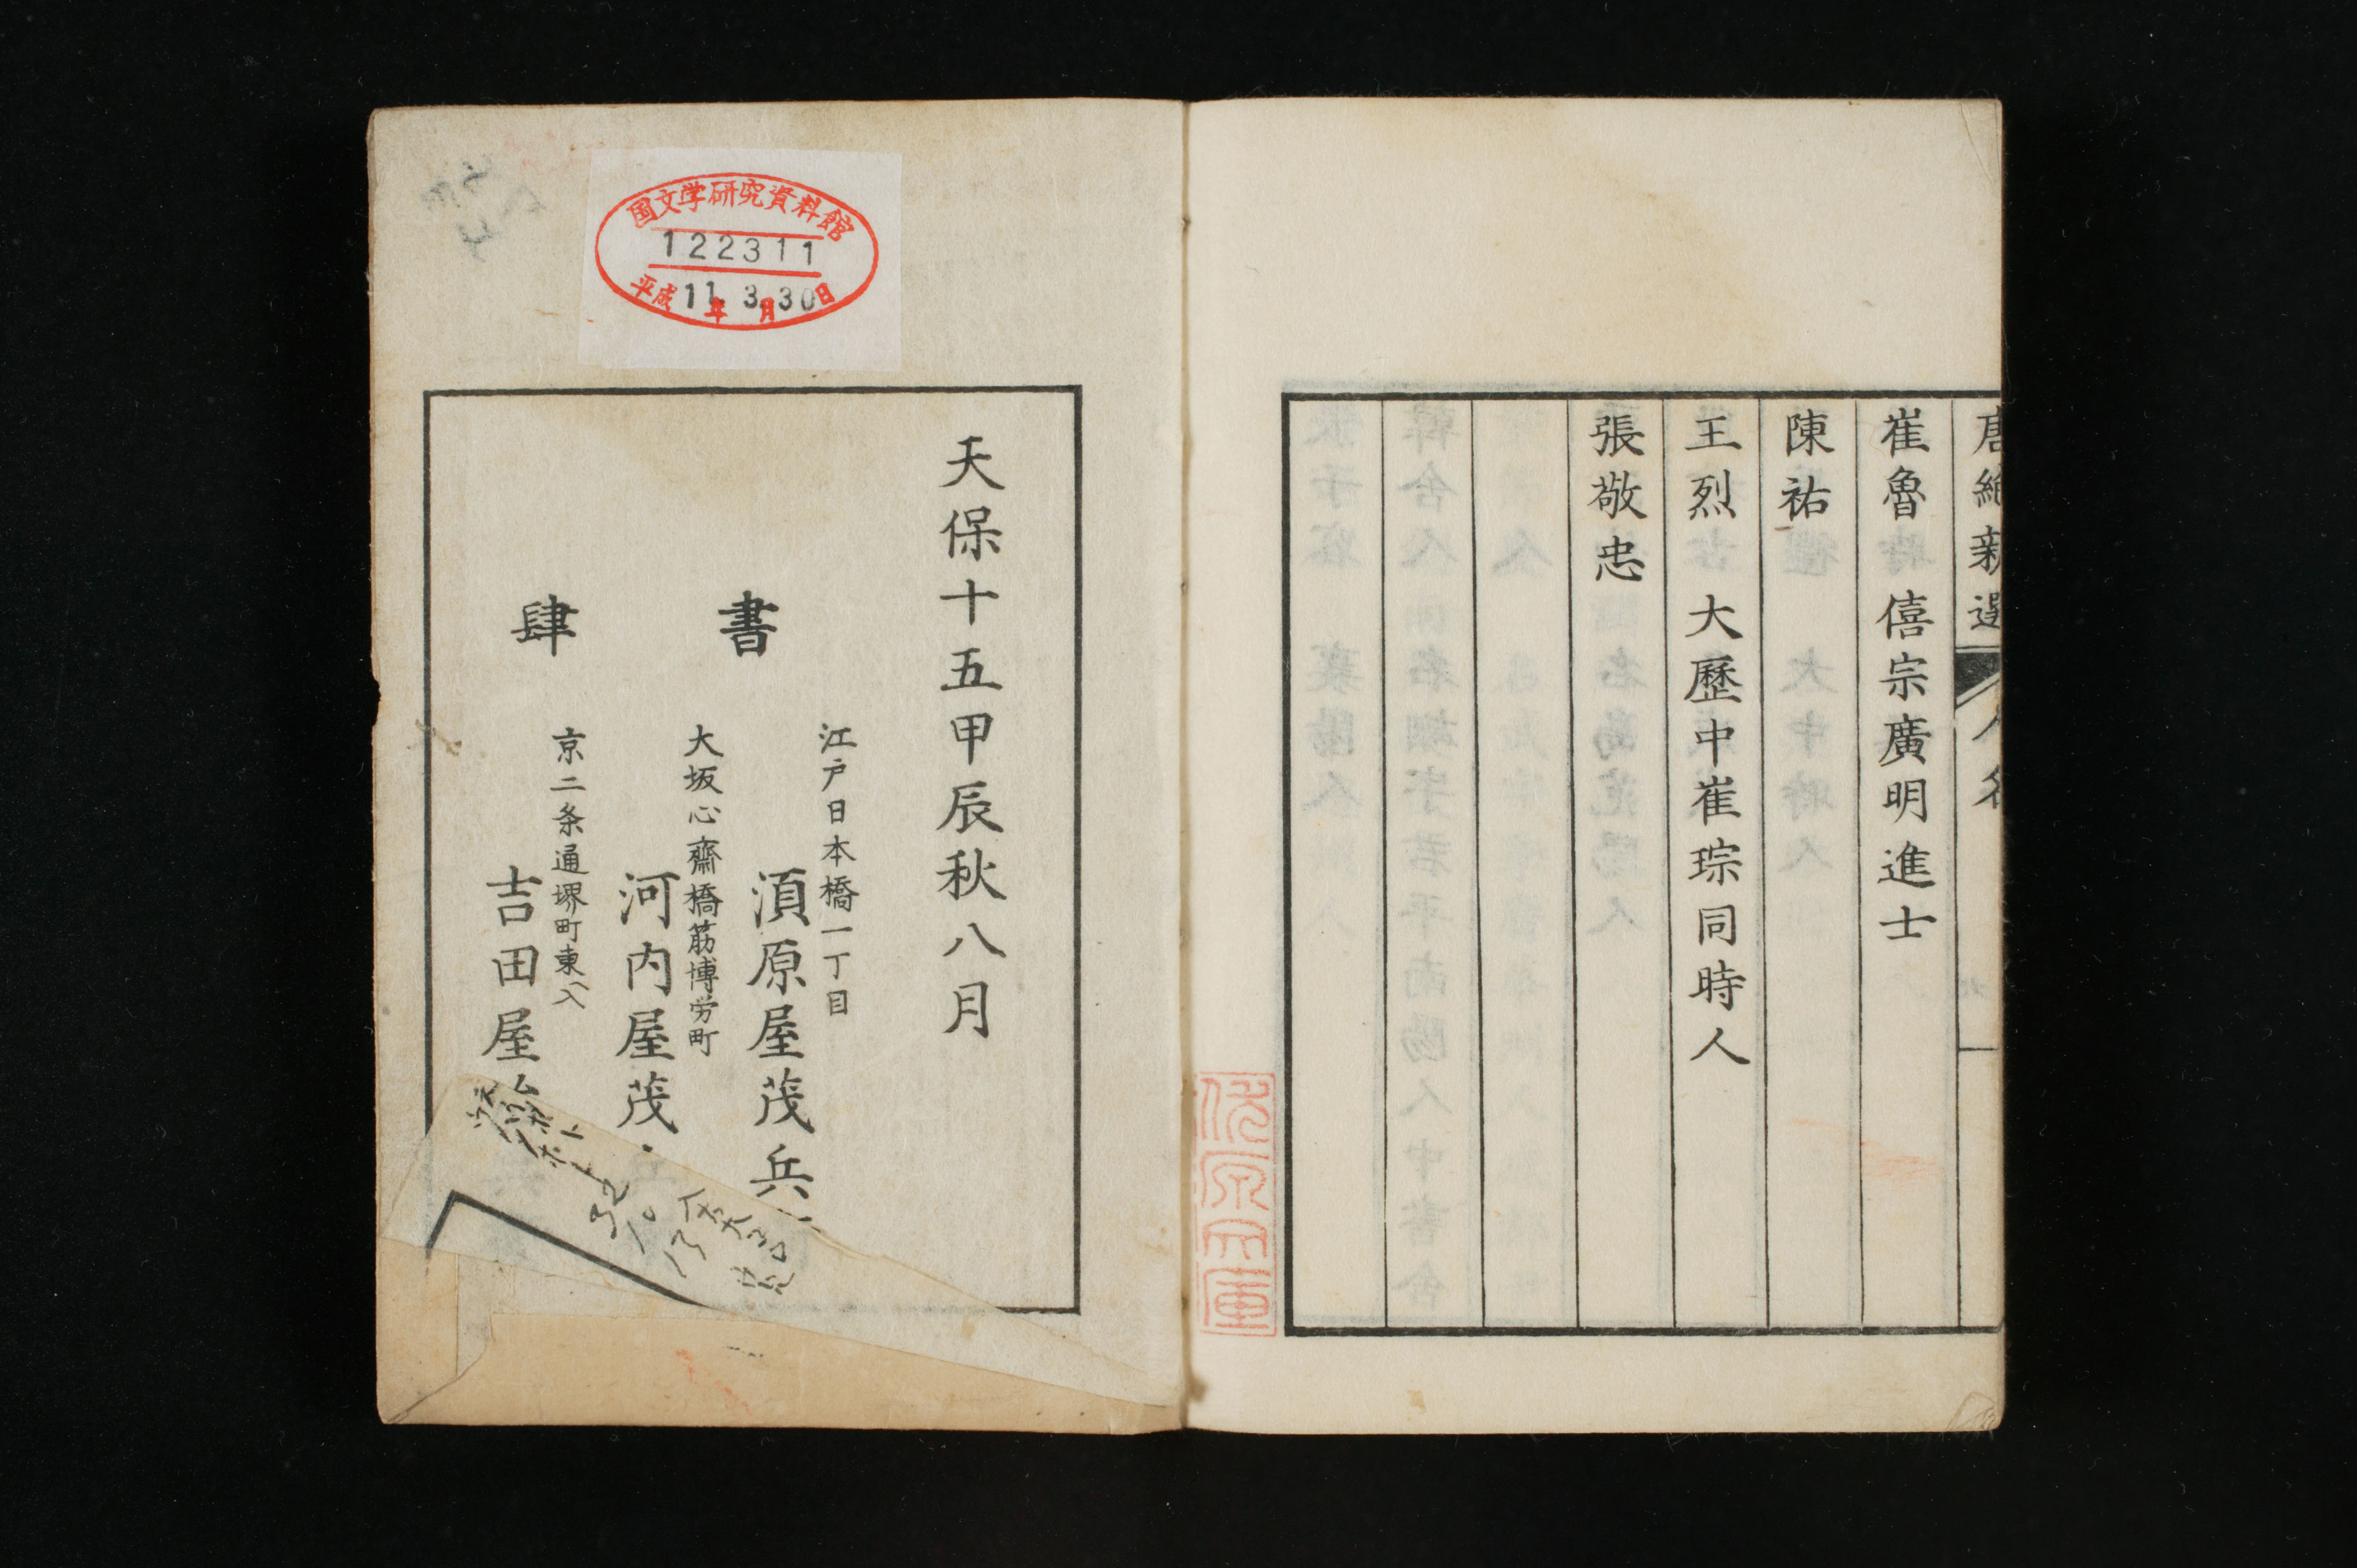 唐絶新選
人名
崔魯 僖宗廣明進士
陳祐
王烈 大歷中崔琮同時人
張敬忠
国文学研究資料館
122311
平成11年3月30日
天保十五甲辰秋八月
書肆
江戸日本橋一丁目
須原屋茂兵
大坂心齋橋筋博労町
河内屋茂
京二条通堺町東入
吉田屋治